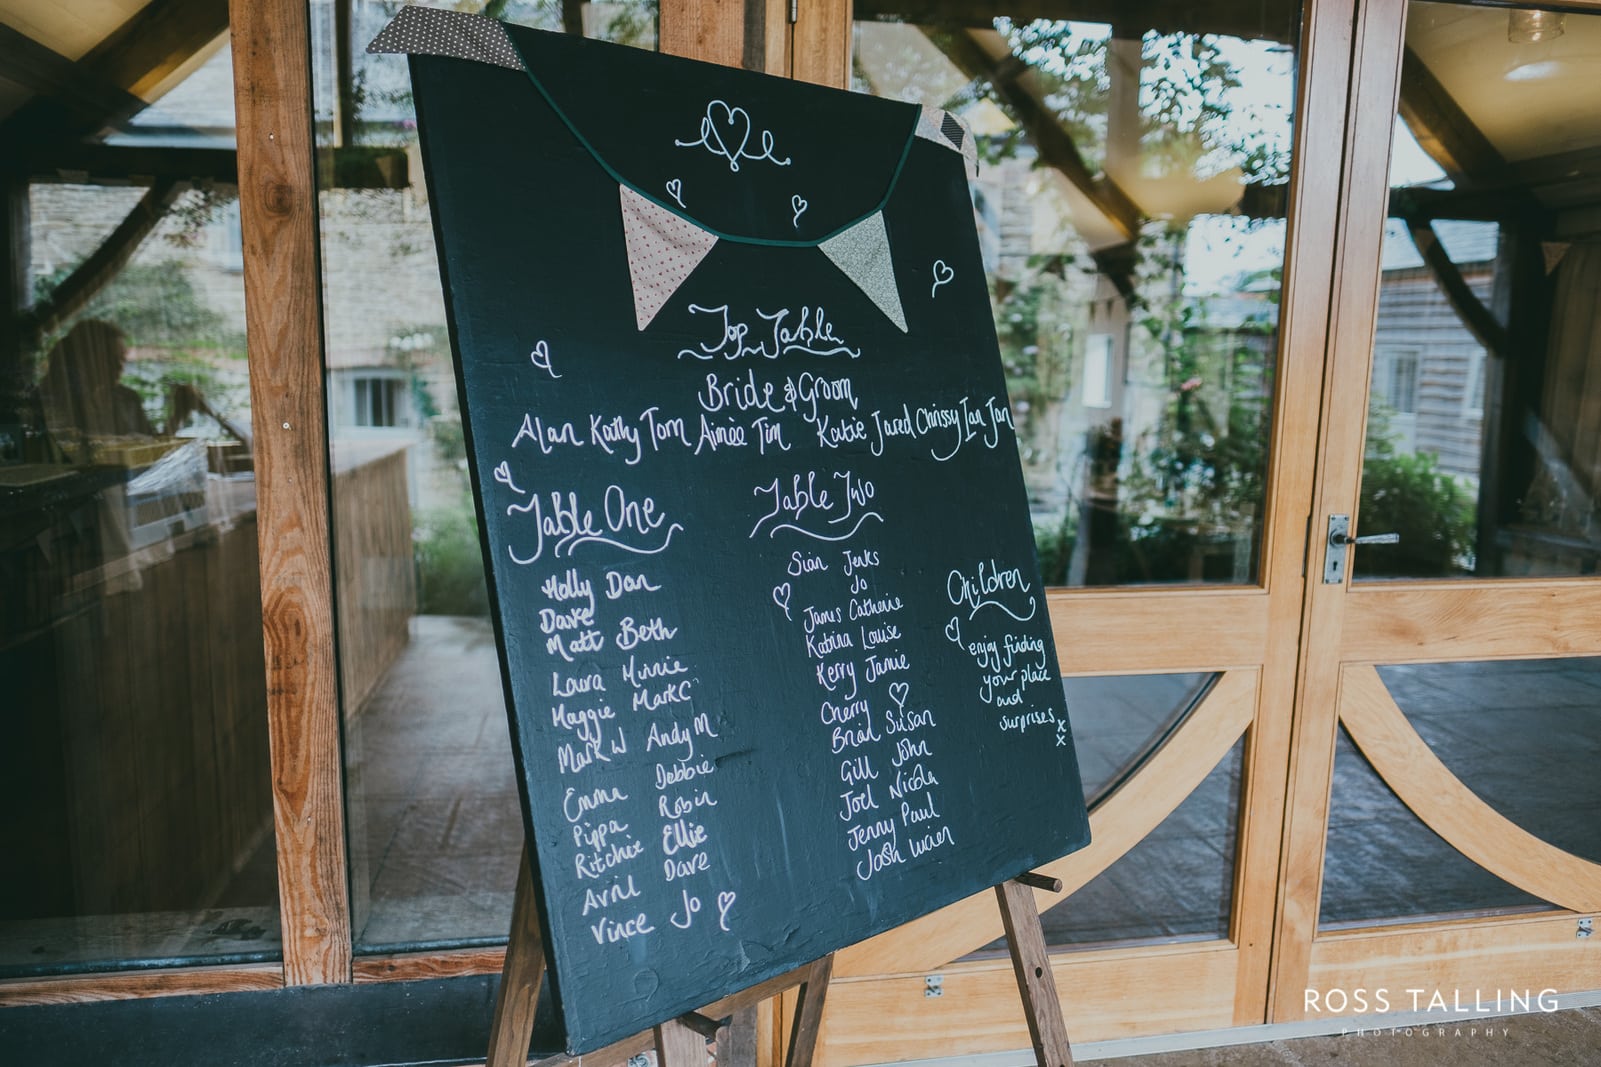 Top Table
Bride & Groom
Alan Kathy Tom Aimèe Tim Katie Jared Chrissy Ian Jan
Table One
Holly Dan
Dave
Matt Beth
Laura Minnie
Maggie Mark C
Mark W Andy M
Debbie
Emma Robin
Pippa Ellie
Ritchie Dave
Avril Jo
Vince
Table Two
Sian Jenks
Jo
James Catherine
Katrina Louise
Kerry Jamie
Cherry
Brad Susan
Gill John
Joel Nicola
Jenny Paul
Josh Lucien
Children
enjoy finding
your place
and
surprises x
x
ROSS TALLING
PHOTOGRAPHY